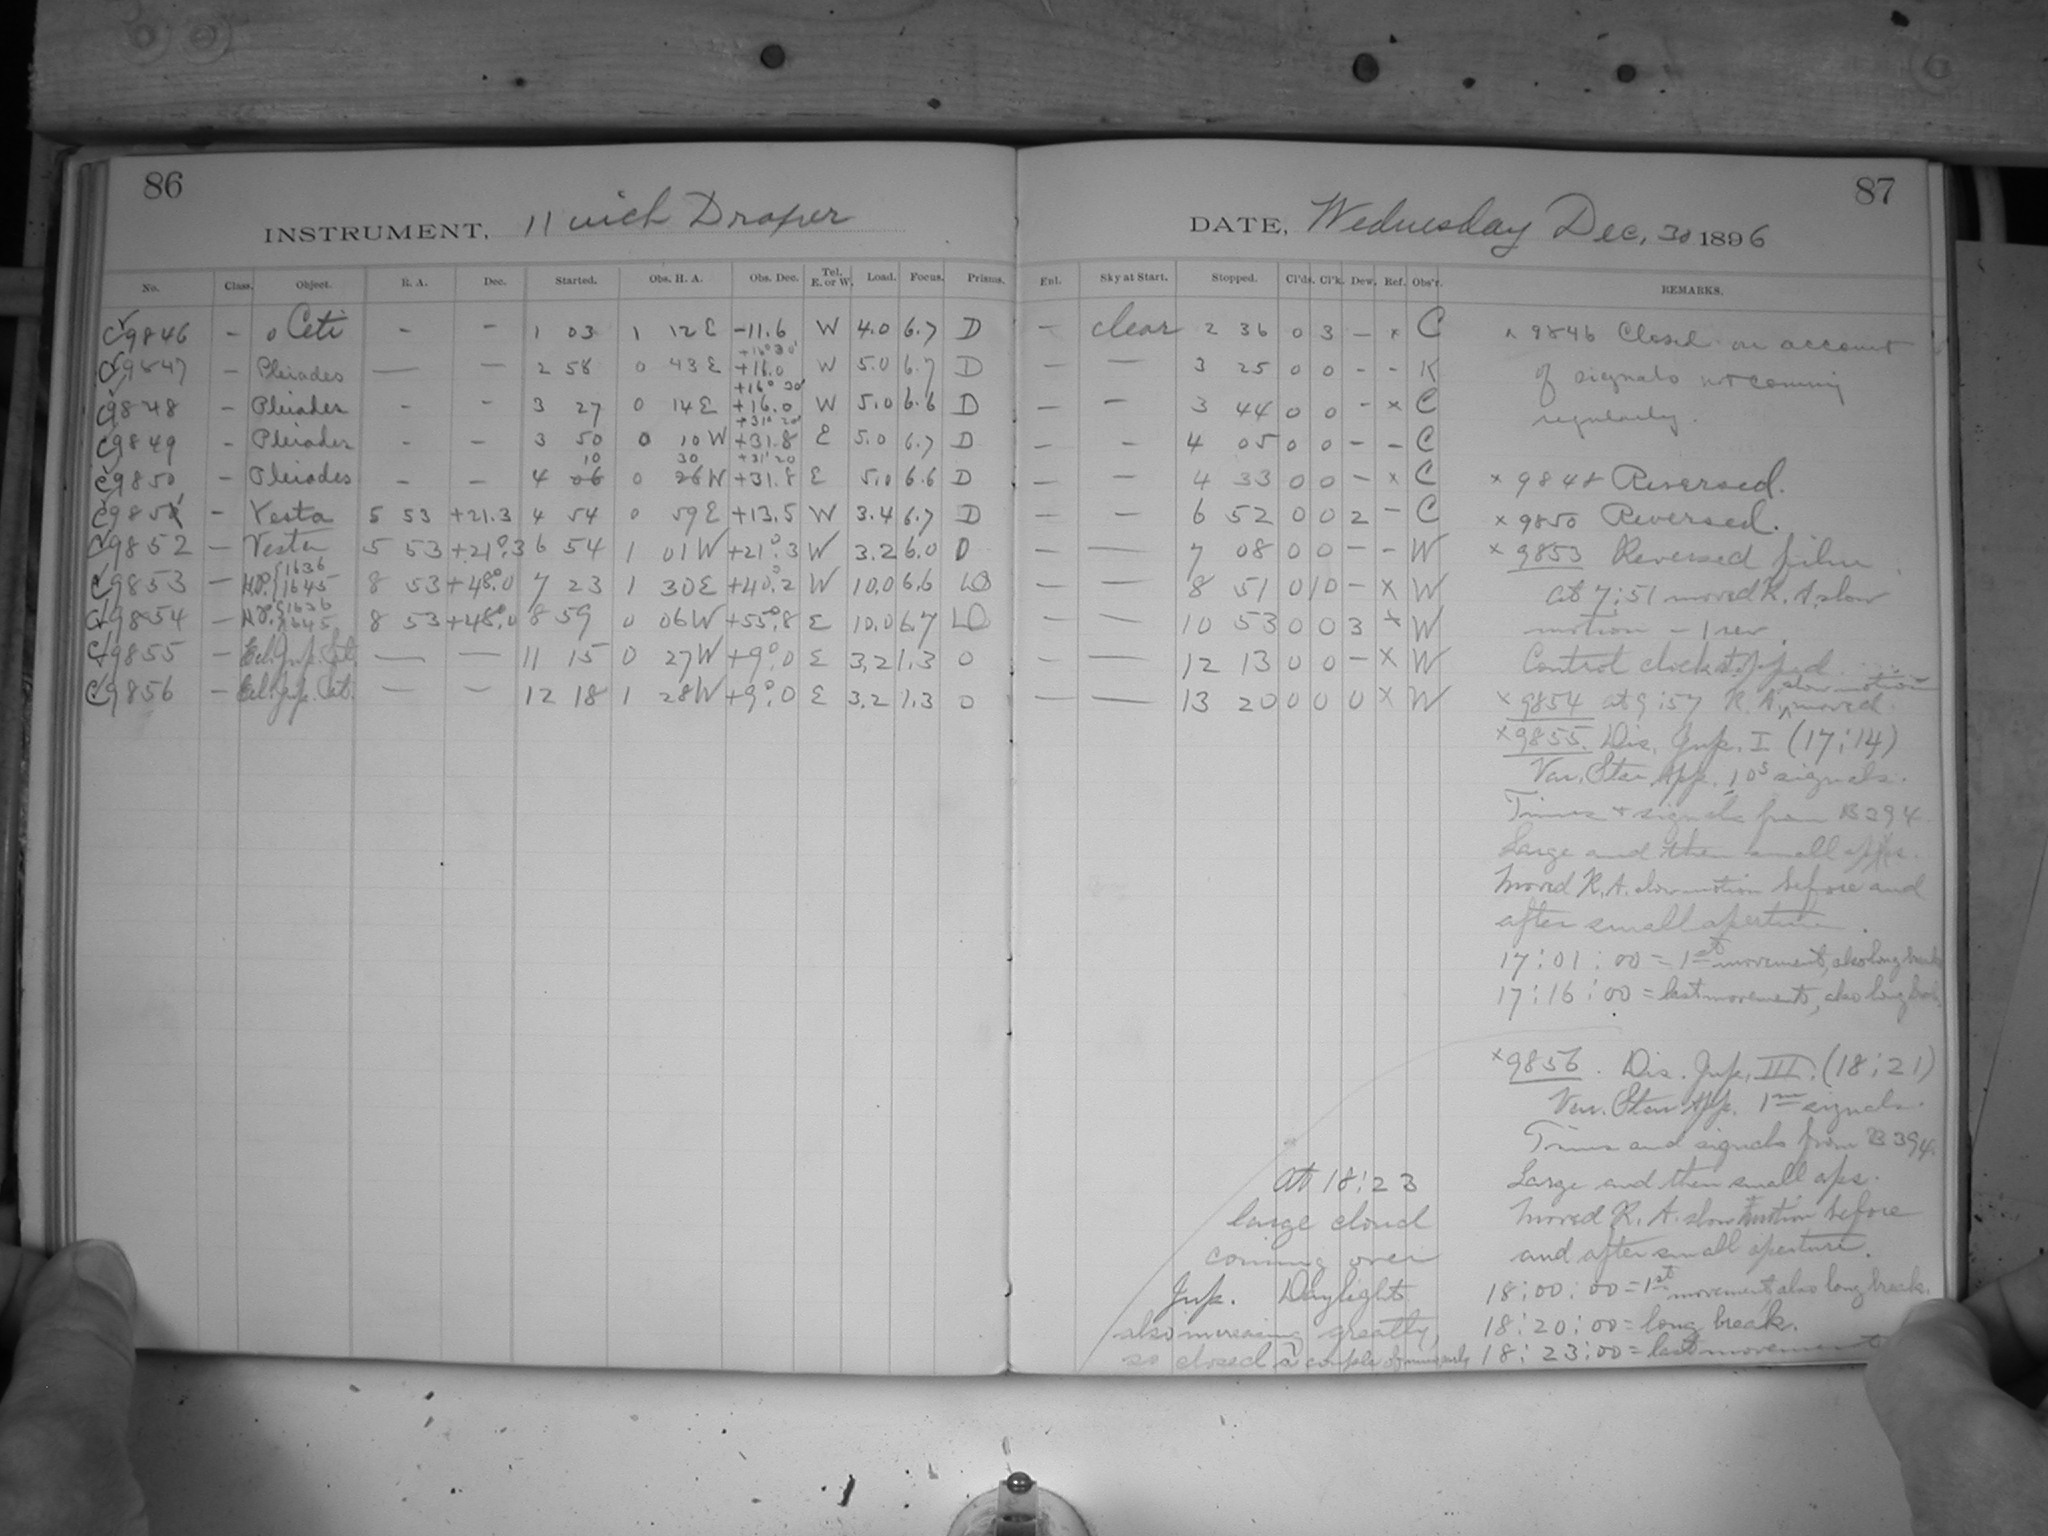 86
INSTRUMENT, 11 inch Draper
No. Class. Object. R. A. Dec. Started. Obs. H. A. Obs. Dec. Tel. E. or W. Load. Focus. Prisms.
C9846 – o Ceti – – 1 03 1 12 E –11.6 W 4.0 6.7 D
+16° 30'
C9847 – Pleiades — — 2 58 0 43 E +16.0 W 5.0 6.7 D
+16° 30'
C9848 – Pleiades - - 3 27 0 14 E +16.0 W 5.0 6.6 D
+31° 20'
C9849 – Pleiades - – 3 50 0 10 W +31.8 E 5.0 6.7 D
10 30 +31° 20
C9850 – Pleiades - – 4 06 0 26 W +31.8 E 5.0 6.6 D
C9851 – Vesta 5 53 +21.3 4 54 0 59 E +13.5 W 3.4 6.7 D
C9852 – Vesta 5 53 +21°.3 6 54 1 01 W +21°.3 W 3.2 6.0 D
C9853 – H.P. {1636 1645 8 53 +48°.0 7 23 1 30 E +40°.2 W 10.0 6.6 LD
C9854 – H.P. {1636 1645 8 53 +48°.0 8 59 0 06 W +55°.8 E 10.0 6.7 LD
C9855 – Ecl. Jup. Sat. — — 11 15 0 27 W +9°.0 E 3.2 1.3 0
C9856 – Ecl. Jup. Sat. — – 12 18 1 28 W +9°.0 E 3.2 1.3 0
87
DATE, Wednesday Dec. 30 1896
Enl. Sky at Start. Stopped. Cl'ds. Cl'k. Dew. Ref. Obs'r. REMARKS.
– clear 2 36 0 3 – x C
— — 3 25 0 0 - - K
— – 3 44 0 0 - x C
– – 4 05 0 0 – – C
– – 4 33 0 0 – x C
– – 6 52 0 0 2 – C
– — 7 08 0 0 – – W
– — 8 51 0 10 – X W
– — 10 53 0 0 3 x W
– — 12 13 0 0 – X W
– — 13 20 0 0 0 X W
x 9846 Closed on account
of signals not coming
regularly.
x 9848 Reversed.
x 9850 Reversed.
x 9853 Reversed film.
at 7:51 moved R. A. slow
motion – 1 rev.
Control clock stopped.
x 9854 at 9:57 R. A. slow motion moved.
x 9855. Dis. Jup. I (17:14)
Var. Star App. 10s signals.
Times + signals from B 394.
Large and then small aps.
Moved R. A. slow motion before and
after small aperture.
17:01:00 = 1st movement, also long break
17:16:00 = last movement, also long break.
x 9856. Dis. Jup. III. (18:21)
Var. Star App. 1m signals.
Times and signals from B 394.
Large and then small aps.
Moved R. A. slow motion before
and after small aperture.
18:00:00 = 1st movement also long break.
18:20:00 = long break.
18:23:00 = last movement
At 18:23
large cloud
coming over
Jup. Daylight
also increasing greatly,
so closed a couple of min. early